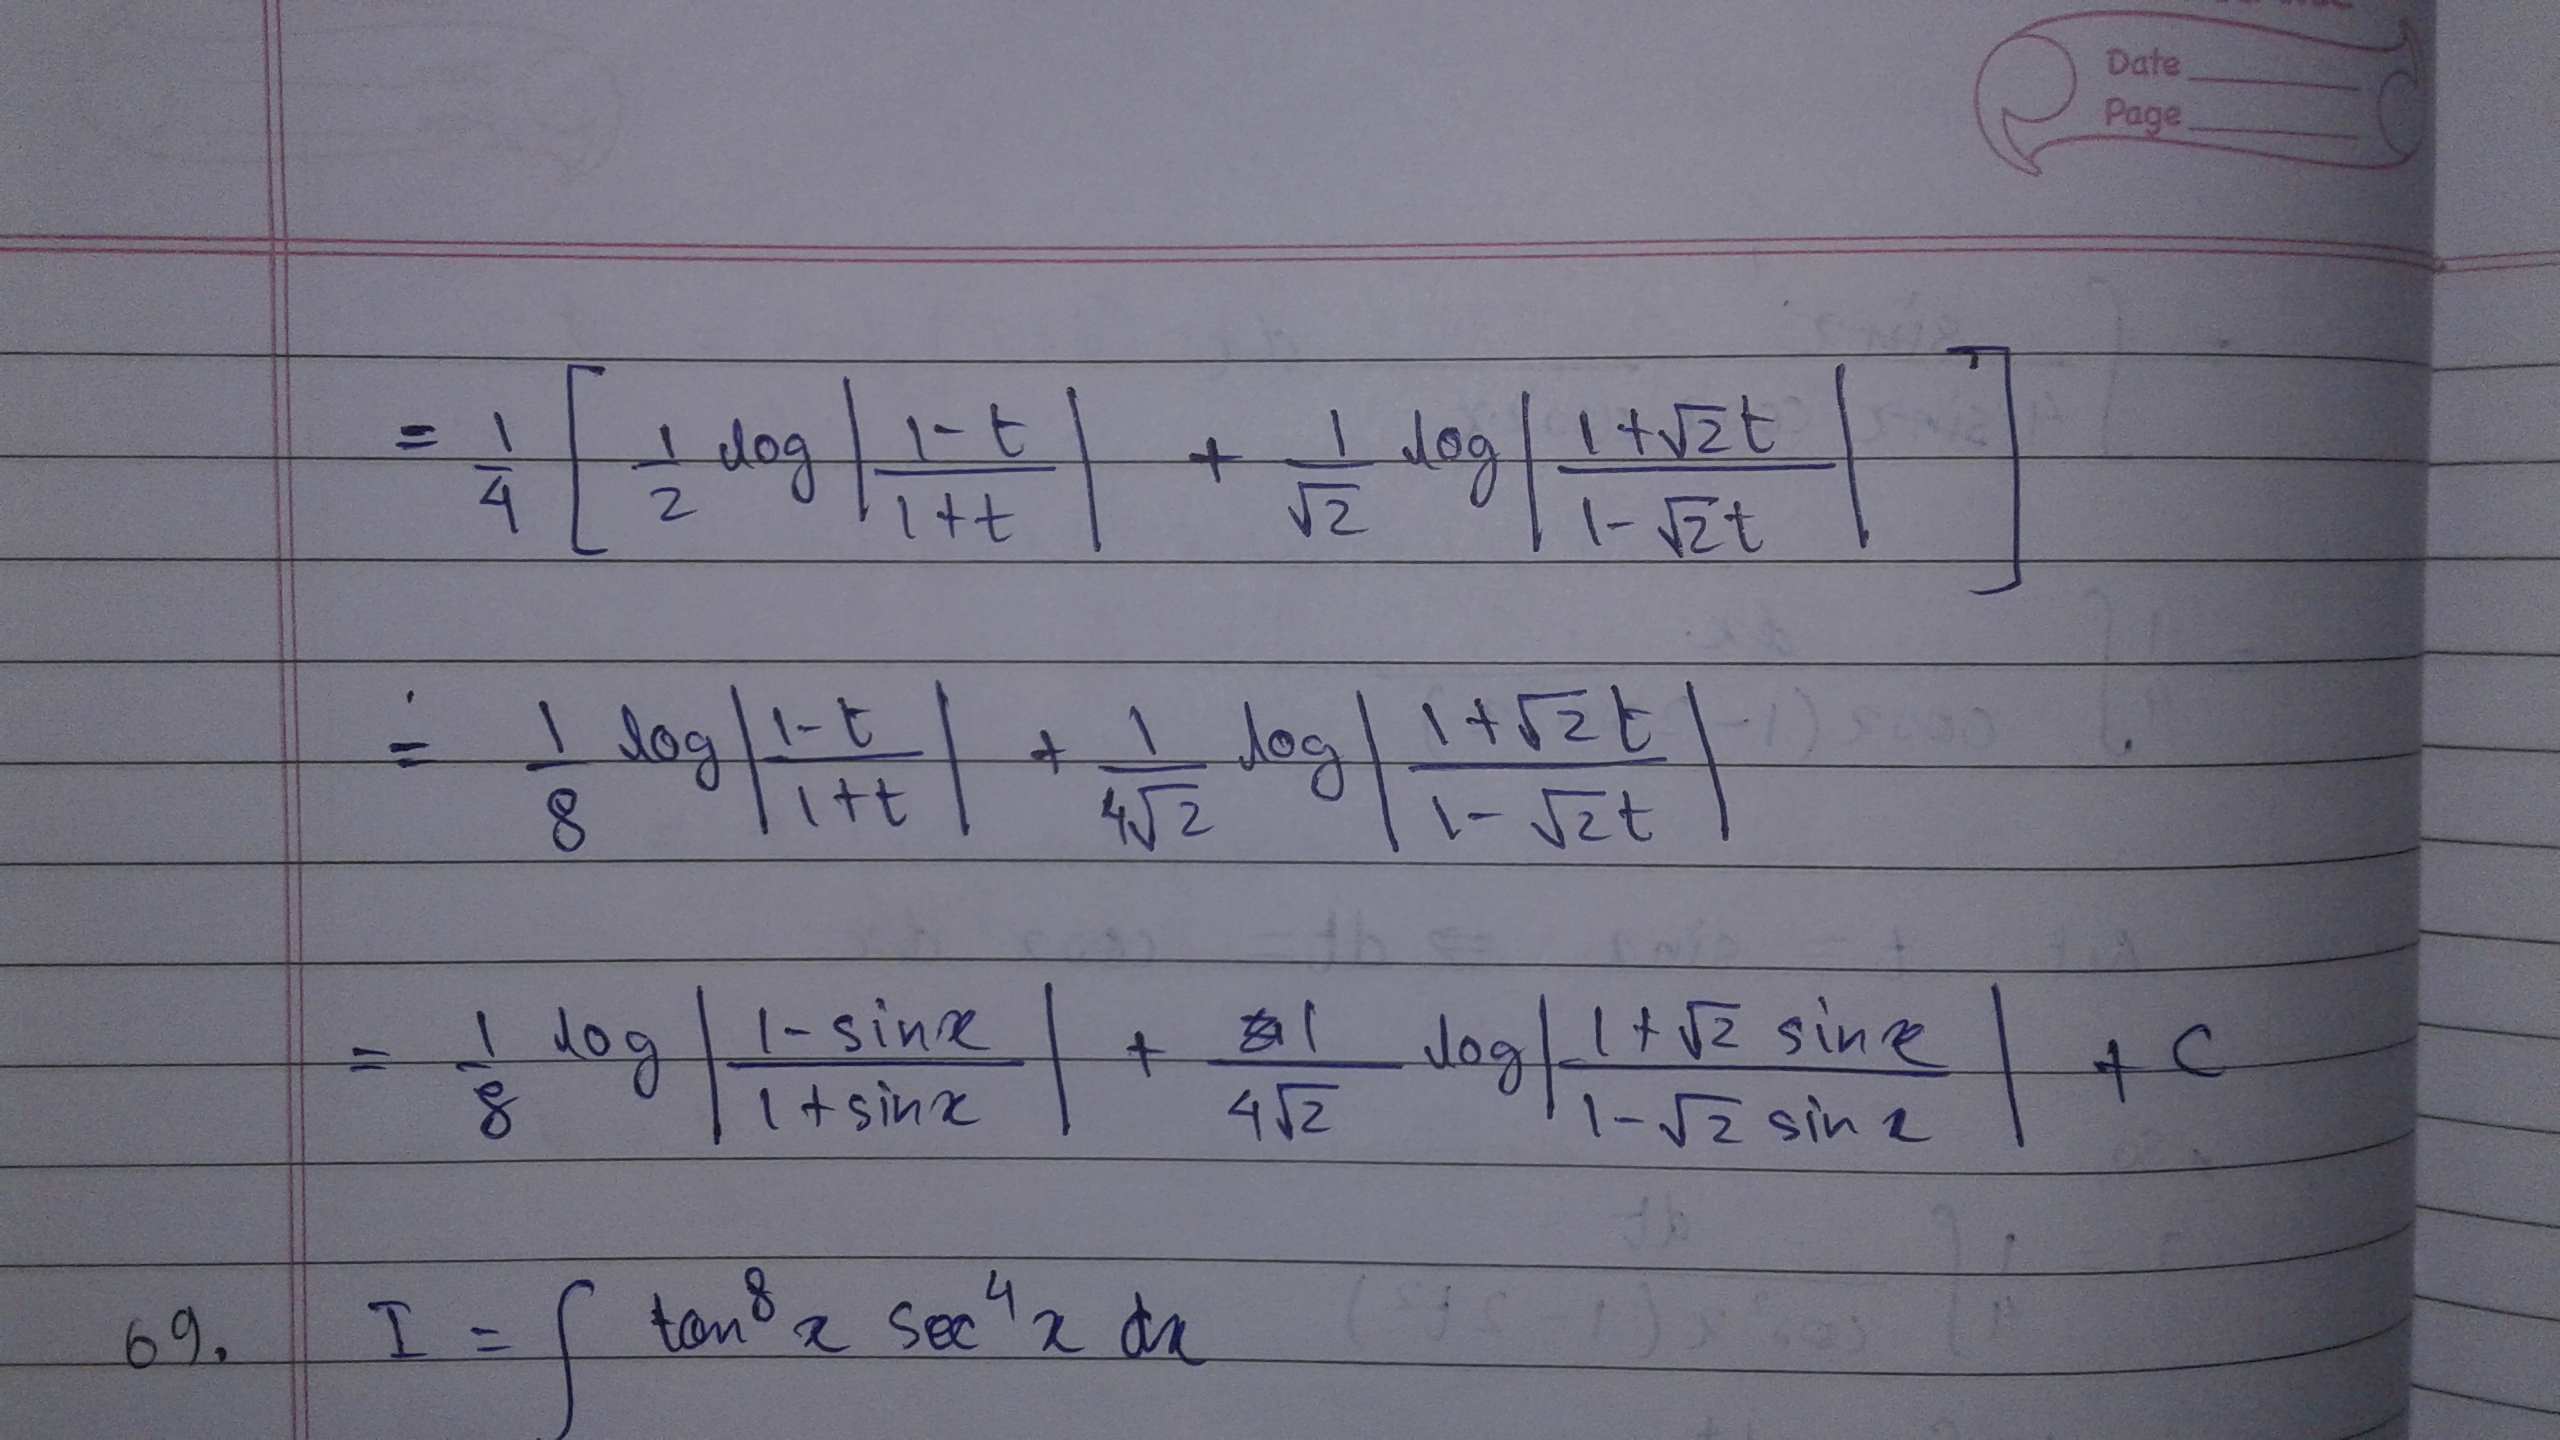 Date
Page
= 1/4 [ 1/2 log | (1-t)/(1+t) | + 1/√2 log | (1+√2t)/(1-√2t) | ]
= 1/8 log | (1-t)/(1+t) | + 1/(4√2) log | (1+√2t)/(1-√2t) |
= 1/8 log | (1-sinx)/(1+sinx) | + 1/(4√2) log | (1+√2 sinx)/(1-√2 sinx) | + C
69. I = ∫ tan⁸x sec⁴x dx